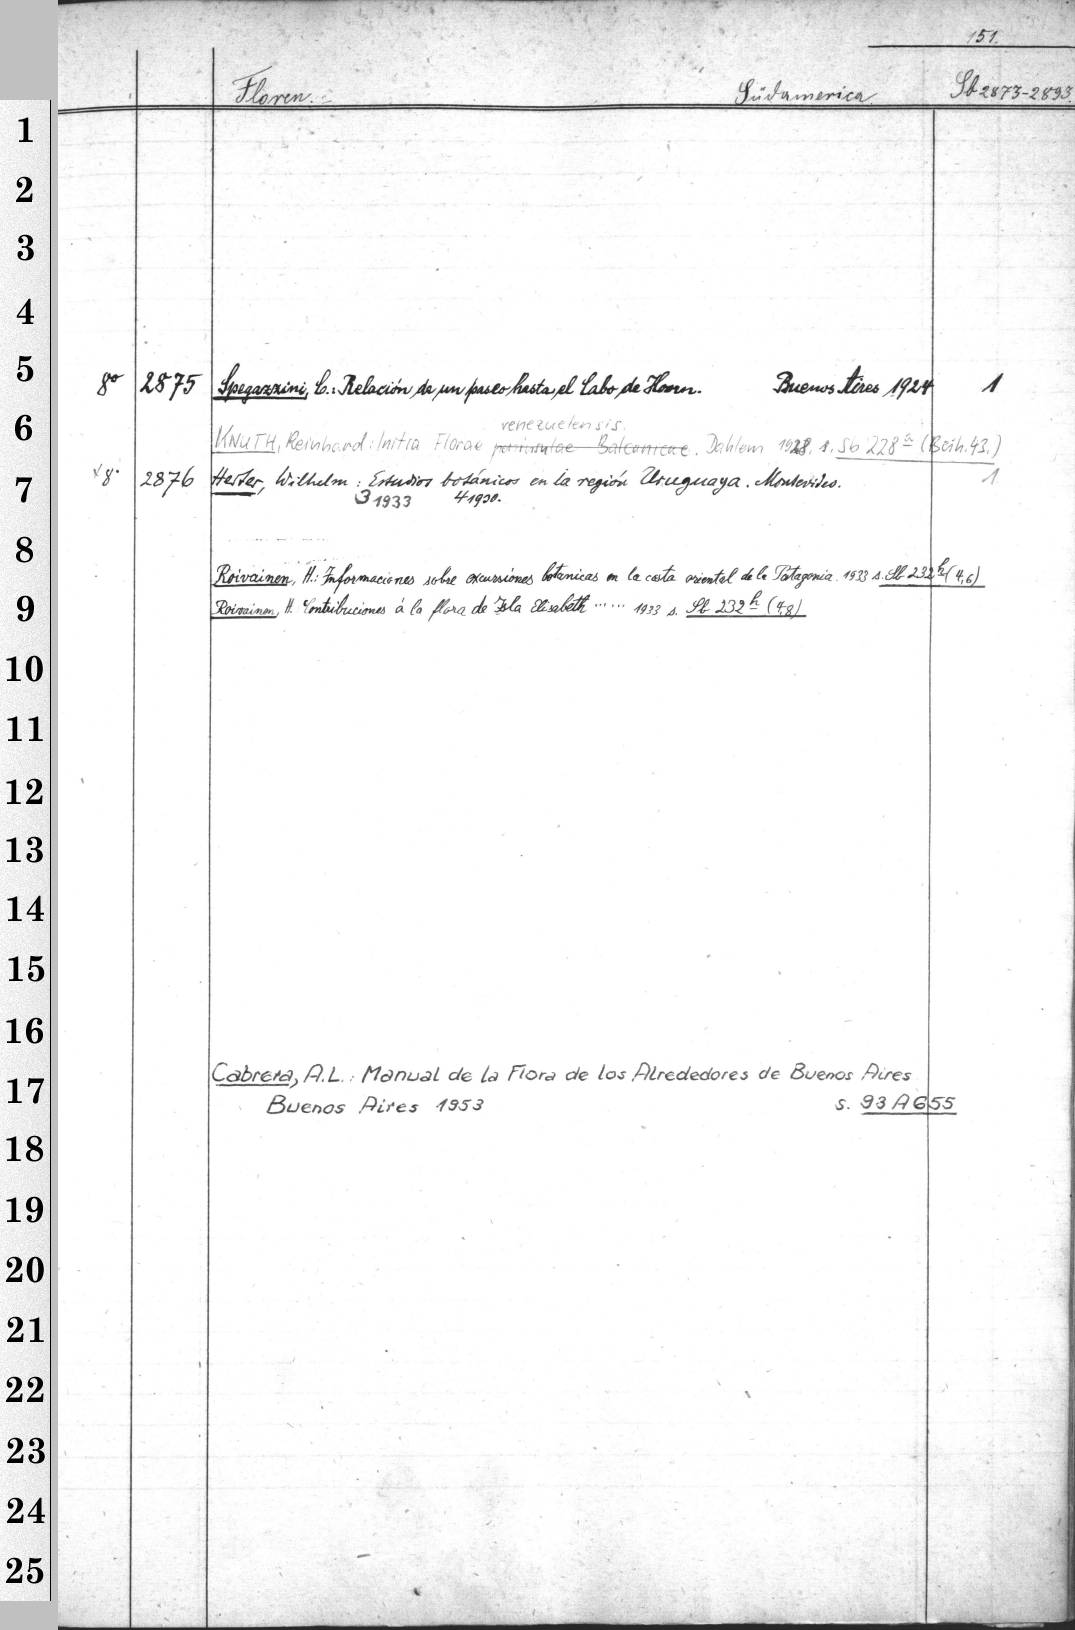 151.
Floren. Südamerica Sb 2873-2893.
1
2
3
4
5
8º 2875 Spegazzini, C.: Relación de un paseo hasta el Cabo de Hoorn. Buenos Aires 1924 1
6
venezuelensis.
KNUTH, Reinhard: Initia Florae peninsulae Balcanicae. Dahlem 1928. s. Sb 228 a (Beih. 43.)
7
x8º 2876 Herter, Wilhelm: Estudios botánicos en la región Uruguaya. Montevideo. 1
3 1933 4 1930.
8
Roivainen, H.: Informaciones sobre excursiones botanicas en la costa oriental de la Patagonia. 1933 s. Sb 232 h (4,6)
9
Roivainen, H. Contribuciones á la flora de Isla Elisabeth ...... 1933 s. Sb 232 h (4,8)
10
11
12
13
14
15
16
Cabrera, A.L.: Manual de la Flora de los Alrededores de Buenos Aires
17
Buenos Aires 1953 s. 93 A 655
18
19
20
21
22
23
24
25